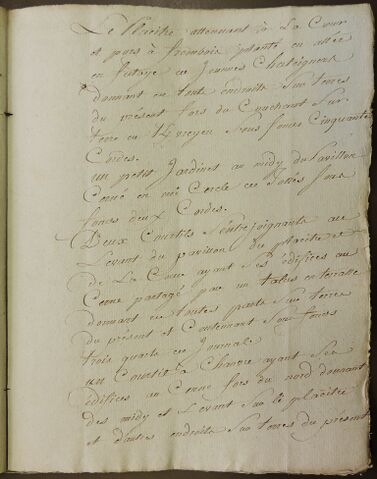 Le Placitre attenant à La Cour
et puis à frambois planté en allée
en futaye de Jeunes Chataigners
donnant en tout endroits Sur terres
du present fors du Couchant Sur
terre Sous fonds Cinquante
Cordes.
un petit Jardinet au midy du Pavillon
Cerné en my Cercle de Sous
fonds deux Cordes.
Deux Courtils S'entrejoignants au
Levant du pavillon du placitre et
de La Cour ayant Ses édifices au
Cerne partagé par un talus en terrasse
donnant de toutes parts Sur terres
du présent et Contenant Sous fonds
trois quarts de Journal
un Courtil à Chanvre ayant Ses
édifices au Cerne fors du nord donnant
des midy et Levant Sur le placitre
et d'autres endroits Sur terres du présent